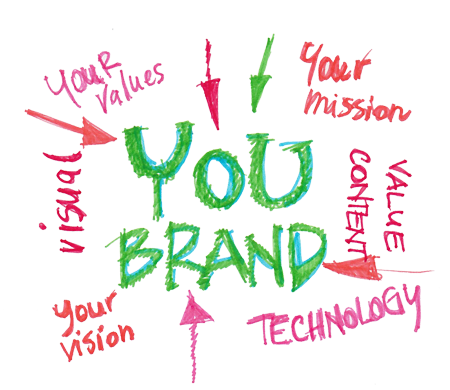 YouR
values
Your
mission
YOU
BRAND
visual
VALUE
CONTENT
Your
vision
TECHNOLOGY